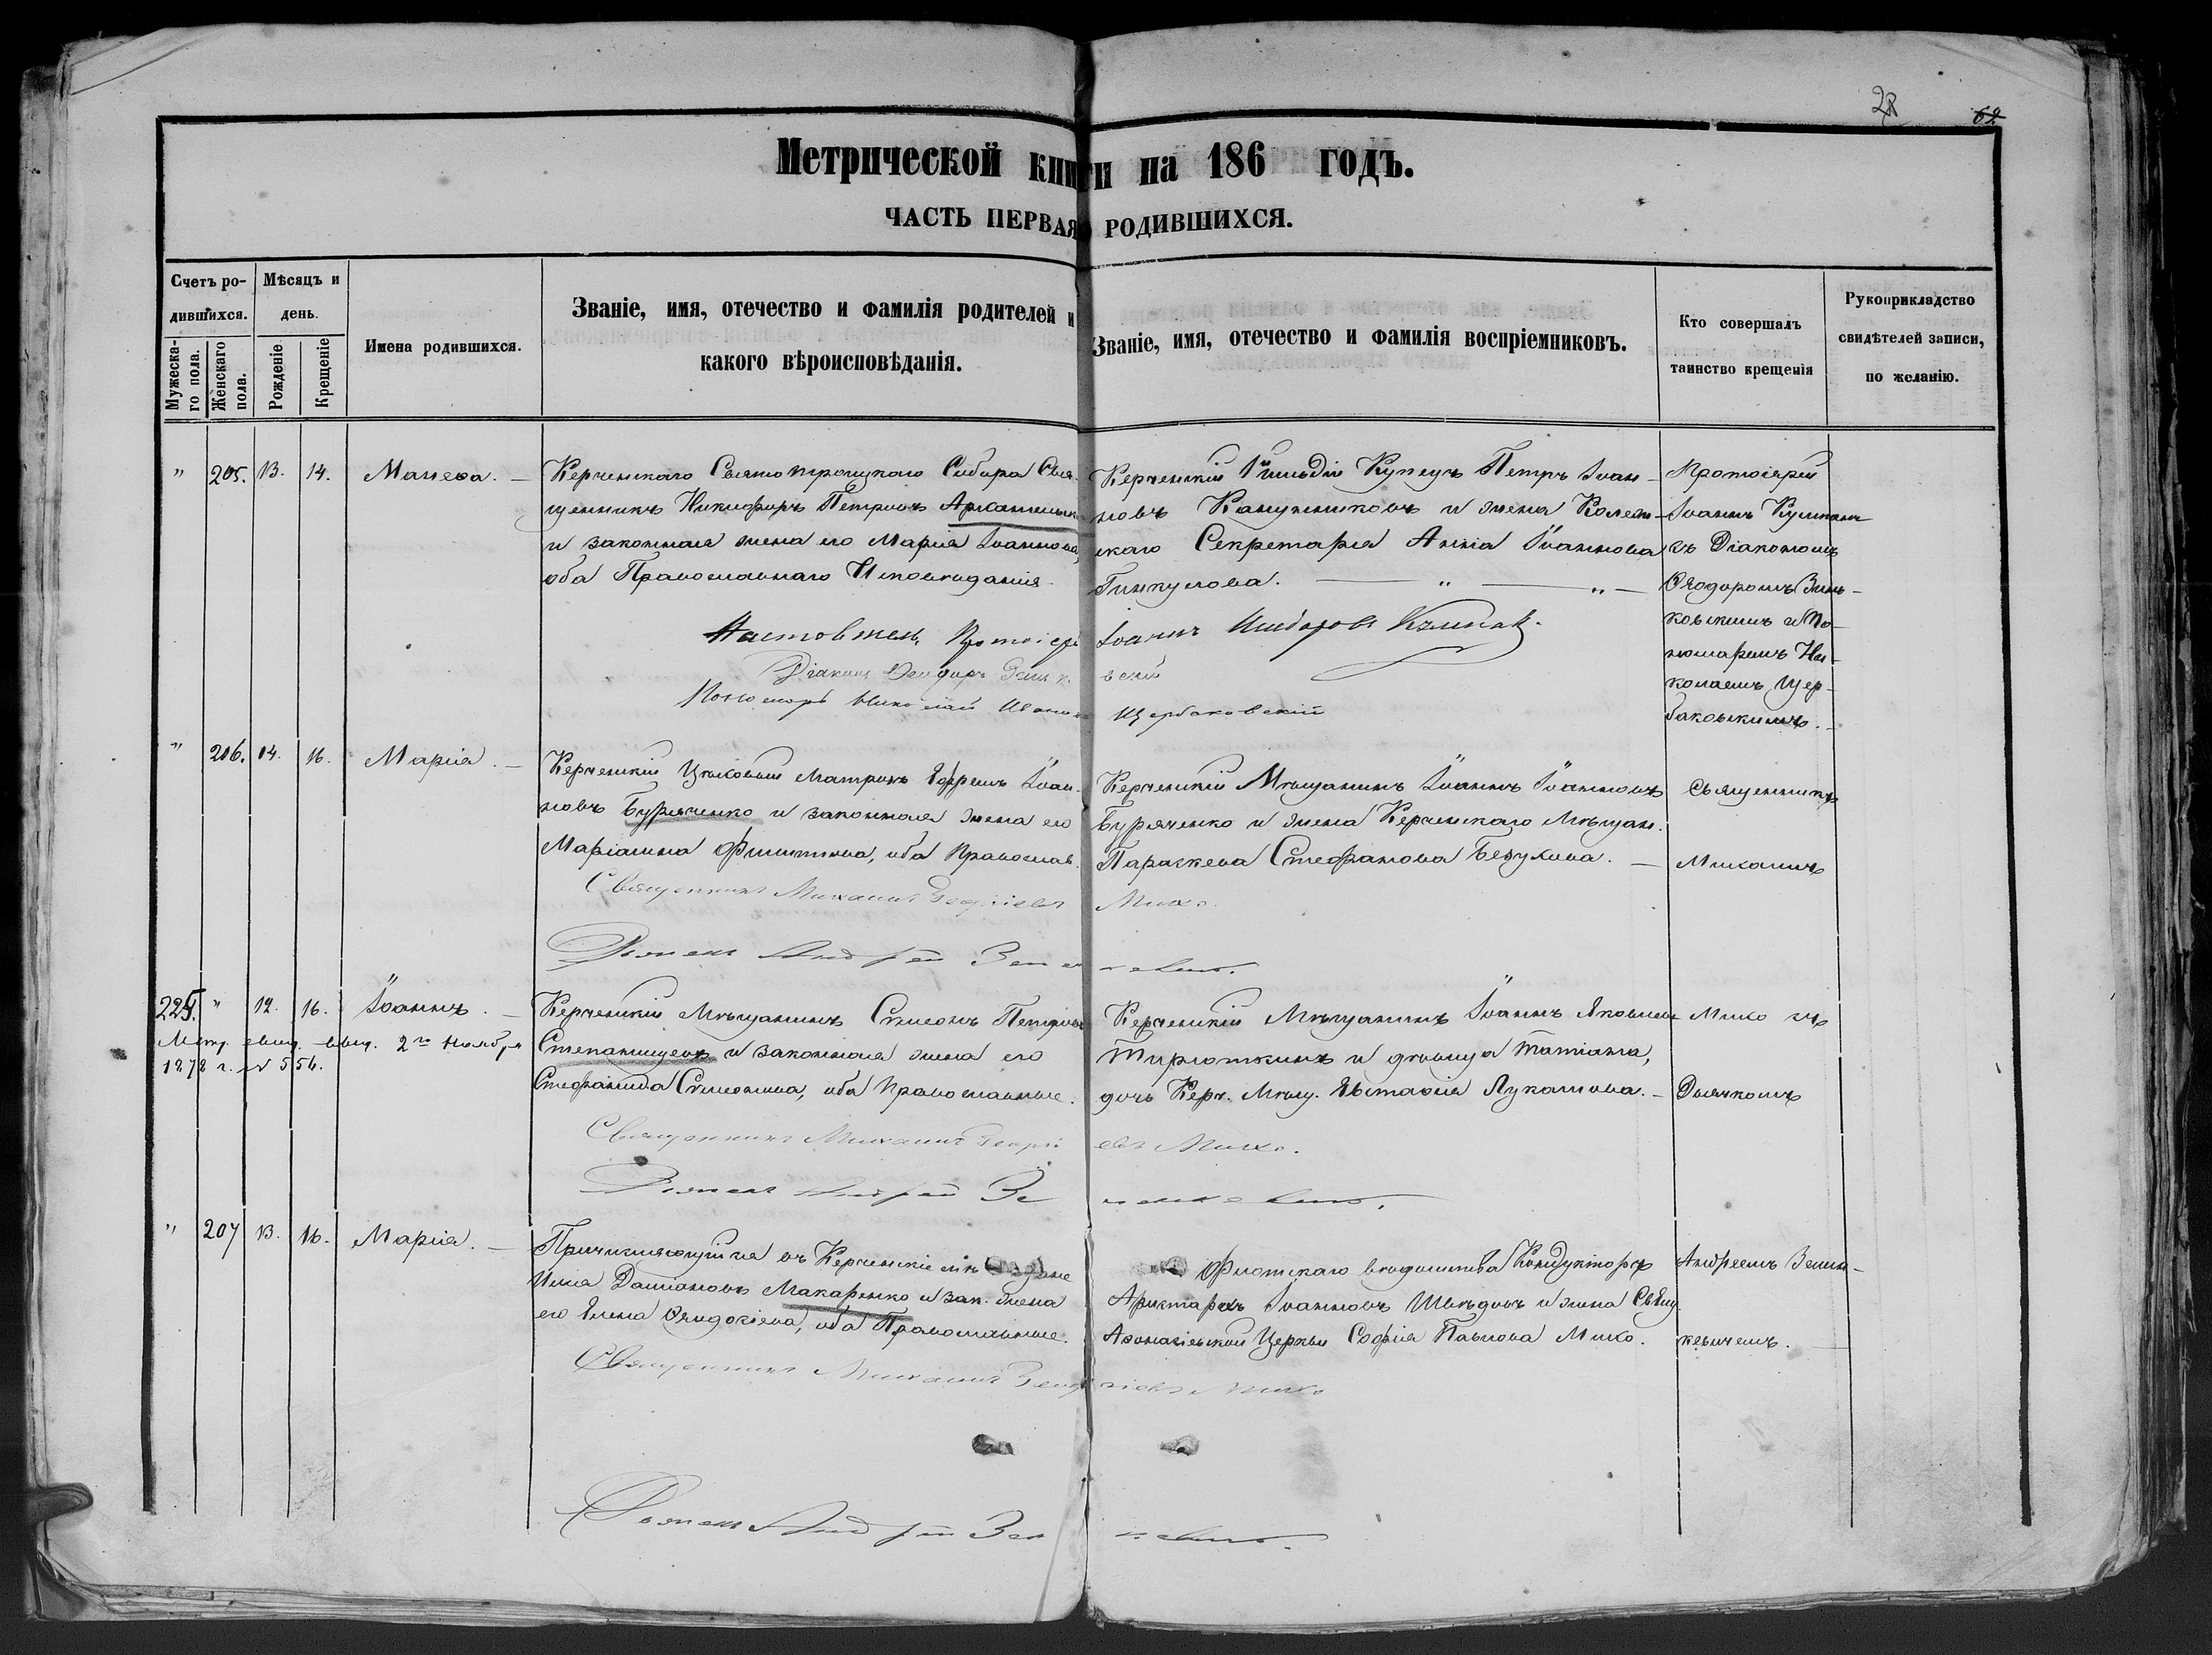 28 69.
Метрической книги на 186 годъ.
ЧАСТЬ ПЕРВАЯ О РОДИВШИХСЯ.
Счетъ ро-
дившихся.
Мужеска-
го пола.
Женскаго
пола.
Мѣсяцъ и
день.
Рожденіе
Крещеніе
Имена родившихся.
Званіе, имя, отечество и фамилія родителей и
какого вѣроисповѣданія.
Званіе, имя, отечество и фамилія воспріемниковъ.
Кто совершалъ
таинство крещенія
Рукоприкладство
свидѣтелей записи,
по желанію.
" 205. 13. 14. Манефа.
Керченскаго Святотроицкаго Собора Свя-
щенникъ Никифоръ Петровъ
и законная жена его Марія Іоаннова,
оба Православнаго Исповѣданія.
Керченскій Гильдіи Купецъ Петръ Іоан-
новъ и жена Коллеж-
скаго Секретаря Анна Іоаннова
Гинкулова. " "
Протоіерей
Іоаннъ
съ Діакономъ
Ѳеодоромъ Зинь-
ковскимъ и По-
номаремъ Ни-
колаемъ Щер-
баковскимъ.
Настоятель Протоіерей Іоаннъ
Діаконъ Ѳеодоръ Зиньковскій
Пономарь Николай Ивановъ Щербаковскій
" 206. 14. 16. Марія.
Керченскій Цеховый Матросъ Ефремъ Іоан-
новъ Буряченко и законная жена его
Маріамна Филиппова, оба Православ.
Керченскій Мѣщанинъ Іоаннъ Іоанновъ
Буряченко и жена Керченскаго Мѣщан.
Параскева Стефанова Безухова.
Священникъ
Михаилъ
Священникъ Михаилъ Георгіевъ Михо.
Дьячекъ Андрей
225. " 12. 16. Іоаннъ.
Метр. свид. выд. 2го Ноября
1878 г. № 556.
Керченскій Мѣщанинъ Симеонъ Петровъ
Степанищевъ и законная жена его
Стефанида Симеонова, оба Православные.
Керченскій Мѣщанинъ Іоаннъ Яковлевъ
Тирюткинъ и дѣвица Татіана,
дочь Керч. Мѣщ. Евстафія Лукашова.
Михо съ
Дьячкомъ
Священникъ Михаилъ Георгіевъ Михо.
Дьячекъ Андрей
" 207 13. 16. Марія.
Причисляющійся въ Керченскіе мѣщане
Илія Даміановъ Макаренко и зак. жена
его Елена Ѳеодосіева, оба Православные.
Флотскаго вѣдомства Кондукторъ
Аристархъ Іоанновъ Шведовъ и жена Свящ.
Аѳонасіевской Церкви Софія Павлова Михо.
Андреемъ Земен-
кевичемъ.
Священникъ Михаилъ Георгіевъ Михо
Дьячекъ Андрей